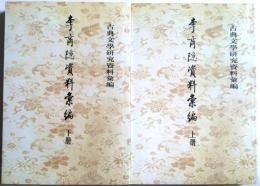 古典文學研究資料彙編
李商隱資料彙編
上册
古典文學研究資料彙編
李商隱資料彙編
上册